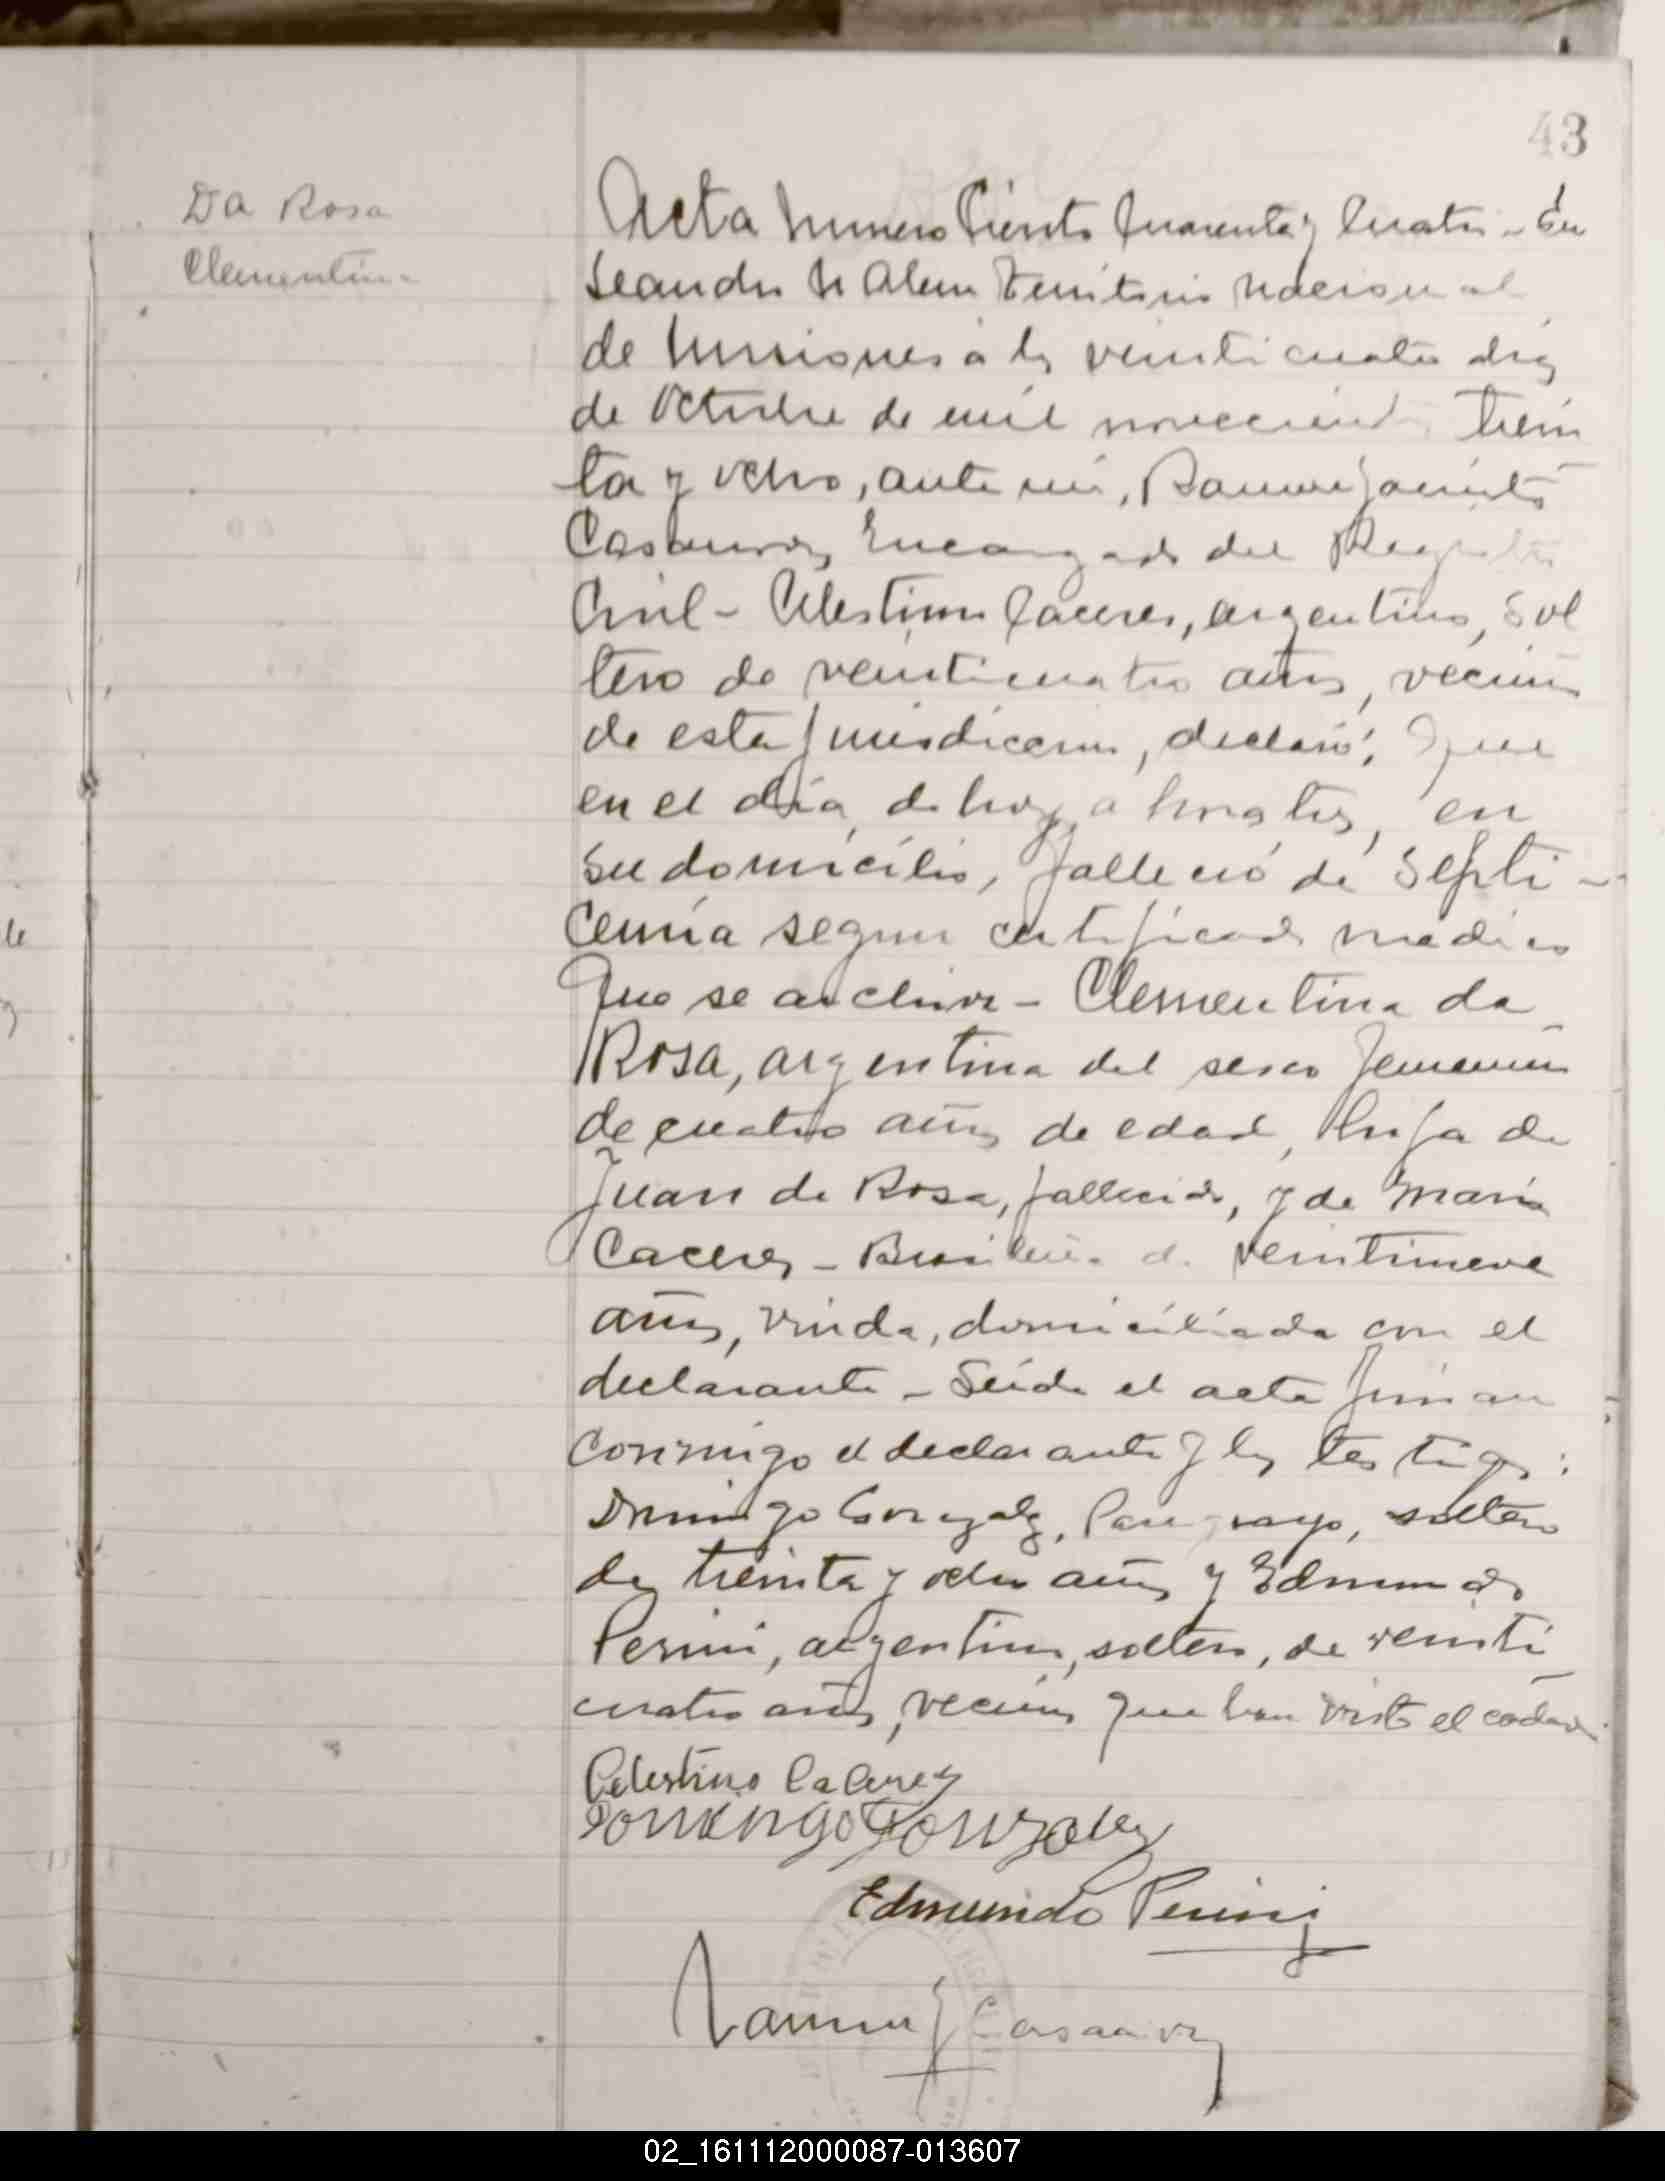 43
Da Rosa
Clementina
Acta Numero Ciento Cuarenta y Cuatro - En
Leandro N Alem Territorio Nacional
de Misiones a los veinticuatro dias
de Octubre de mil novecientos trein
ta y ocho, ante mi, Ramon Jacinto
Casanova, Encargado del Registro
Civil - Celestino Caceres, argentino, sol
tero de veinticuatro años, vecino
de esta jurisdiccion, declaró: Que
en el día de hoy a horas tres, en
su domicilio, falleció de Septi-
cemia segun certificado medico
que se archiva - Clementina da
Rosa, argentina del sexo femenino
de cuatro años de edad, hija de
Juan de Rosa, fallecido, y de Maria
Caceres - Brasileña de veintinueve
años, viuda, domiciliada con el
declarante - Leida el acta firman
conmigo el declarante y los testigos:
Domingo Gonzalez, Paraguayo, soltero
de treinta y ocho años y Edmundo
Perini, argentino, soltero, de veinti
cuatro años, vecinos que han visto el cadaver.
Celestino Caceres
Domingo Gonzalez
Edmundo Perini
Ramon J Casanova
02_161112000087-013607